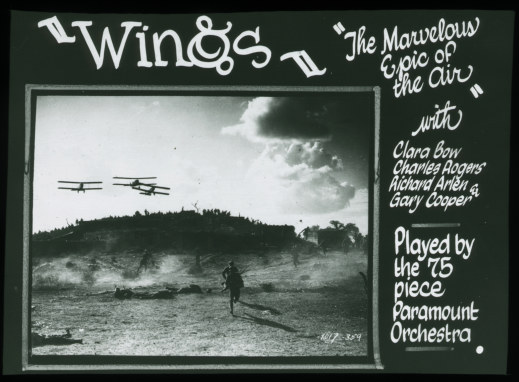 "Wings"
"The Marvelous
Epic of
the Air"
with
Clara Bow
Charles Rogers
Richard Arlen &
Gary Cooper
Played by
the 75
piece
Paramount
Orchestra.